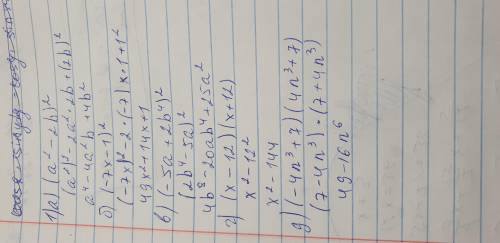 1) а) (a² - 2b)²
(a²)² - 2a²·2b + (2b)²
a⁴ - 4a²b + 4b²
б) (-7x - 1)²
(-7x)² - 2·(-7)x·1 + 1²
49x² + 14x + 1
в) (-5a + 2b⁴)²
(2b⁴ - 5a)²
4b⁸ - 20ab⁴ + 25a²
г) (x - 12)(x + 12)
x² - 12²
x² - 144
д) (-4n³ + 7)(4n³ + 7)
(7 - 4n³)·(7 + 4n³)
49 - 16n⁶